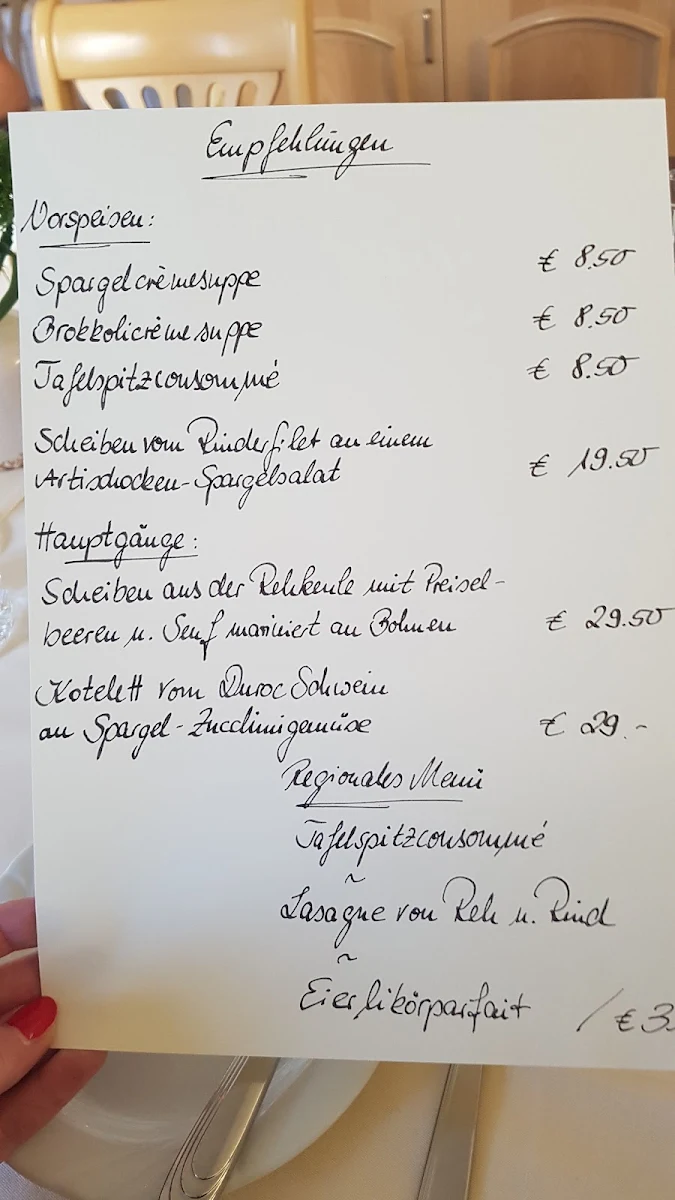 Empfehlungen
Vorspeisen:
Spargelcrèmesuppe € 8.50
Brokkolicrèmesuppe € 8.50
Tafelspitzconsommé € 8.50
Scheiben vom Rinderfilet an einem
Artischocken-Spargelsalat € 19.50
Hauptgänge:
Scheiben aus der Rehkeule mit Preisel-
beeren u. Senf mariniert an Bohnen € 29.50
Kotelett vom Duroc Schwein
an Spargel-Zucchinigemüse € 29.-
Regionales Menü
Tafelspitzconsommé
~
Lasagne von Reh u. Rind
~
Eierlikörparfait / € 3